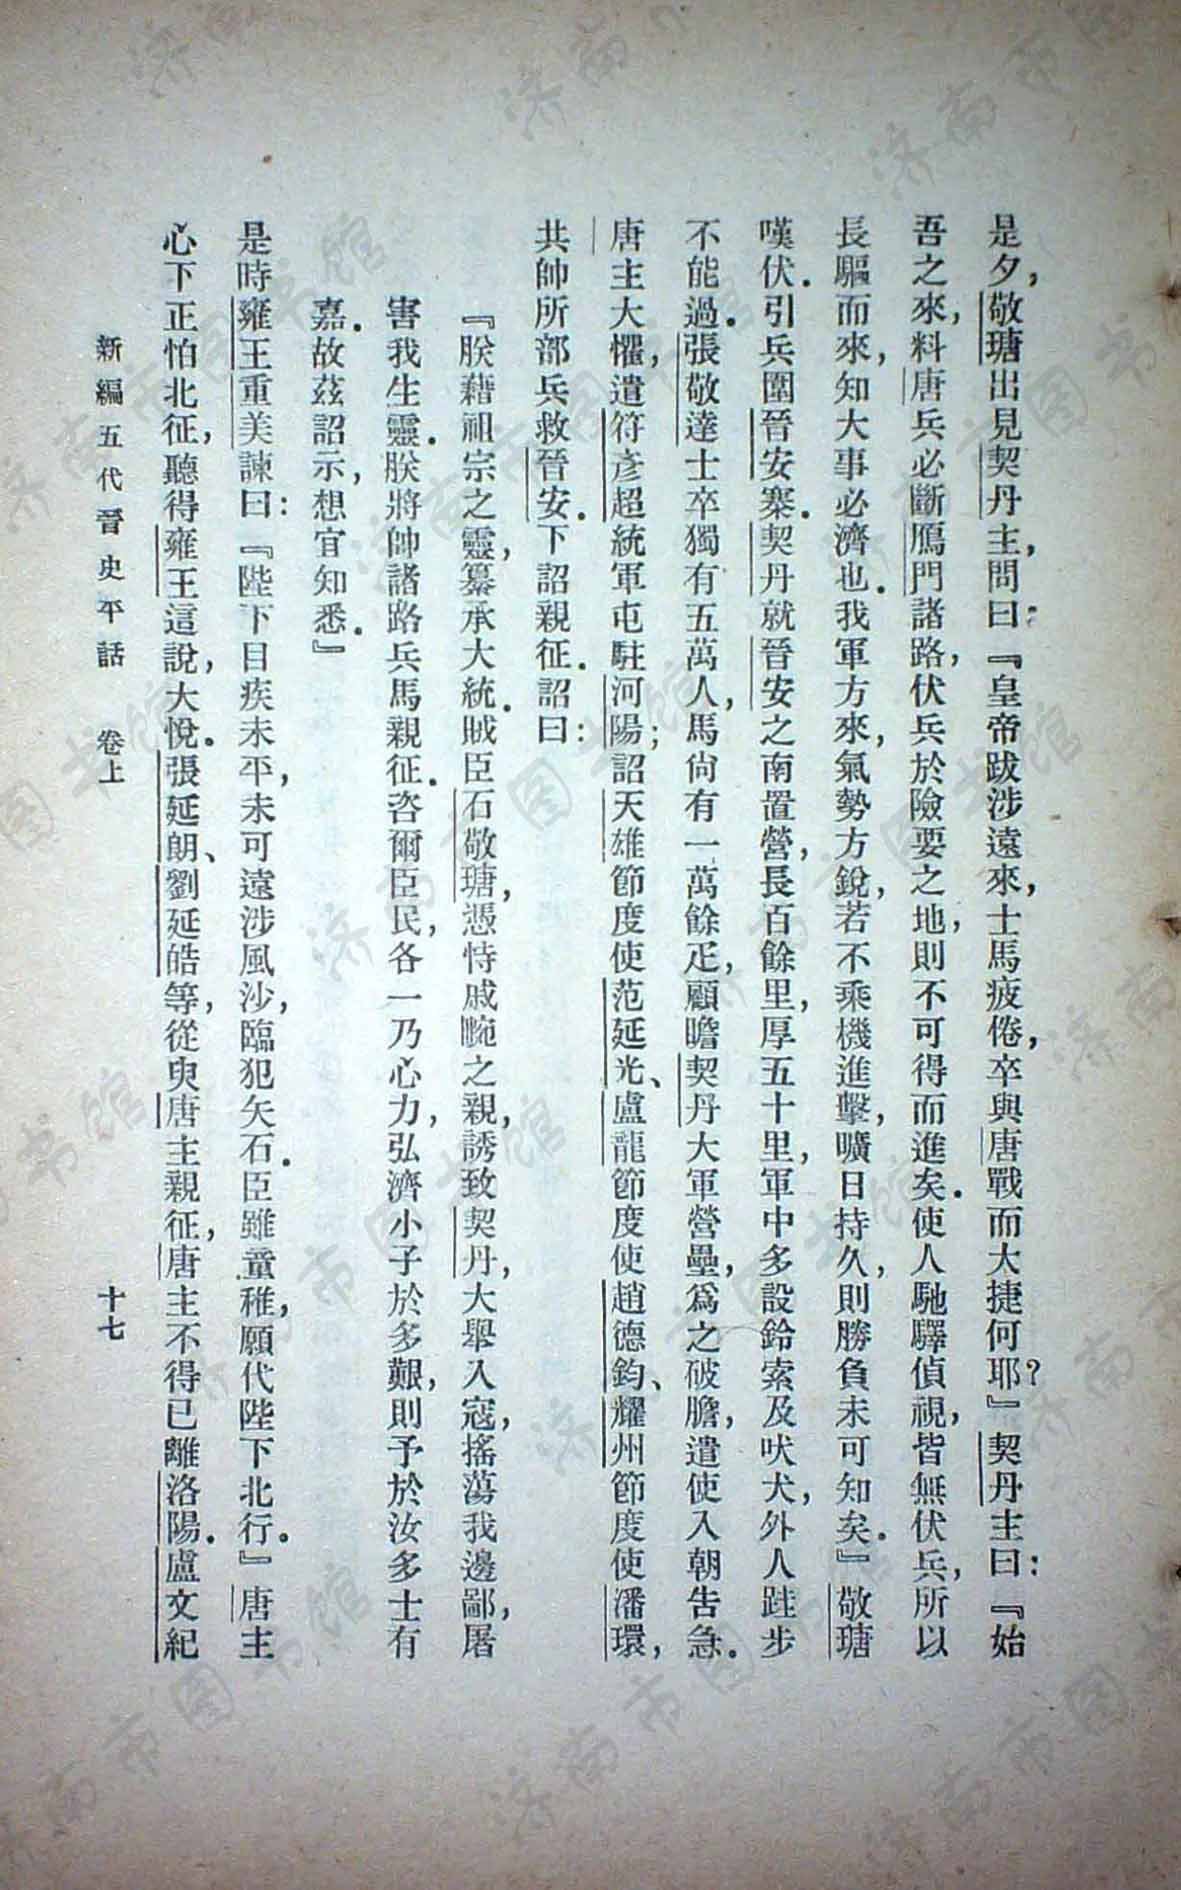 是夕，敬瑭出見契丹主，問曰：『皇帝跋涉遠來，士馬疲倦，卒與唐戰而大捷何耶？』契丹主曰：『始
吾之來，料唐兵必斷鴈門諸路，伏兵於險要之地，則不可得而進矣．使人馳驛偵視，皆無伏兵，所以
長驅而來，知大事必濟也．我軍方來，氣勢方銳，若不乘機進擊，曠日持久，則勝負未可知矣．』敬瑭
嘆伏．引兵圍晉安寨．契丹就晉安之南置營，長百餘里，厚五十里，軍中多設鈴索及吠犬，外人跬步
不能過．張敬達士卒獨有五萬人，馬尚有一萬餘疋，顧瞻契丹大軍營壘，爲之破膽，遣使入朝告急．
唐主大懼，遣符彥超統軍屯駐河陽；詔天雄節度使范延光、盧龍節度使趙德鈞、耀州節度使潘環，
共帥所部兵救晉安．下詔親征．詔曰：
『朕藉祖宗之靈，纂承大統．賊臣石敬瑭，憑恃戚畹之親，誘致契丹，大舉入寇，搖蕩我邊鄙，屠
害我生靈．朕將帥諸路兵馬親征．咨爾臣民，各一乃心力，弘濟小子於多艱，則予於汝多士有
嘉．故茲詔示，想宜知悉．』
是時雍王重美諫曰：『陛下目疾未平，未可遠涉風沙，臨犯矢石．臣雖童稚，願代陛下北行．』唐主
心下正怕北征，聽得雍王這說，大悅．張延朗、劉延皓等，從臾唐主親征，唐主不得已離洛陽．盧文紀
新編五代晉史平話　卷上　十七
济南市图书馆